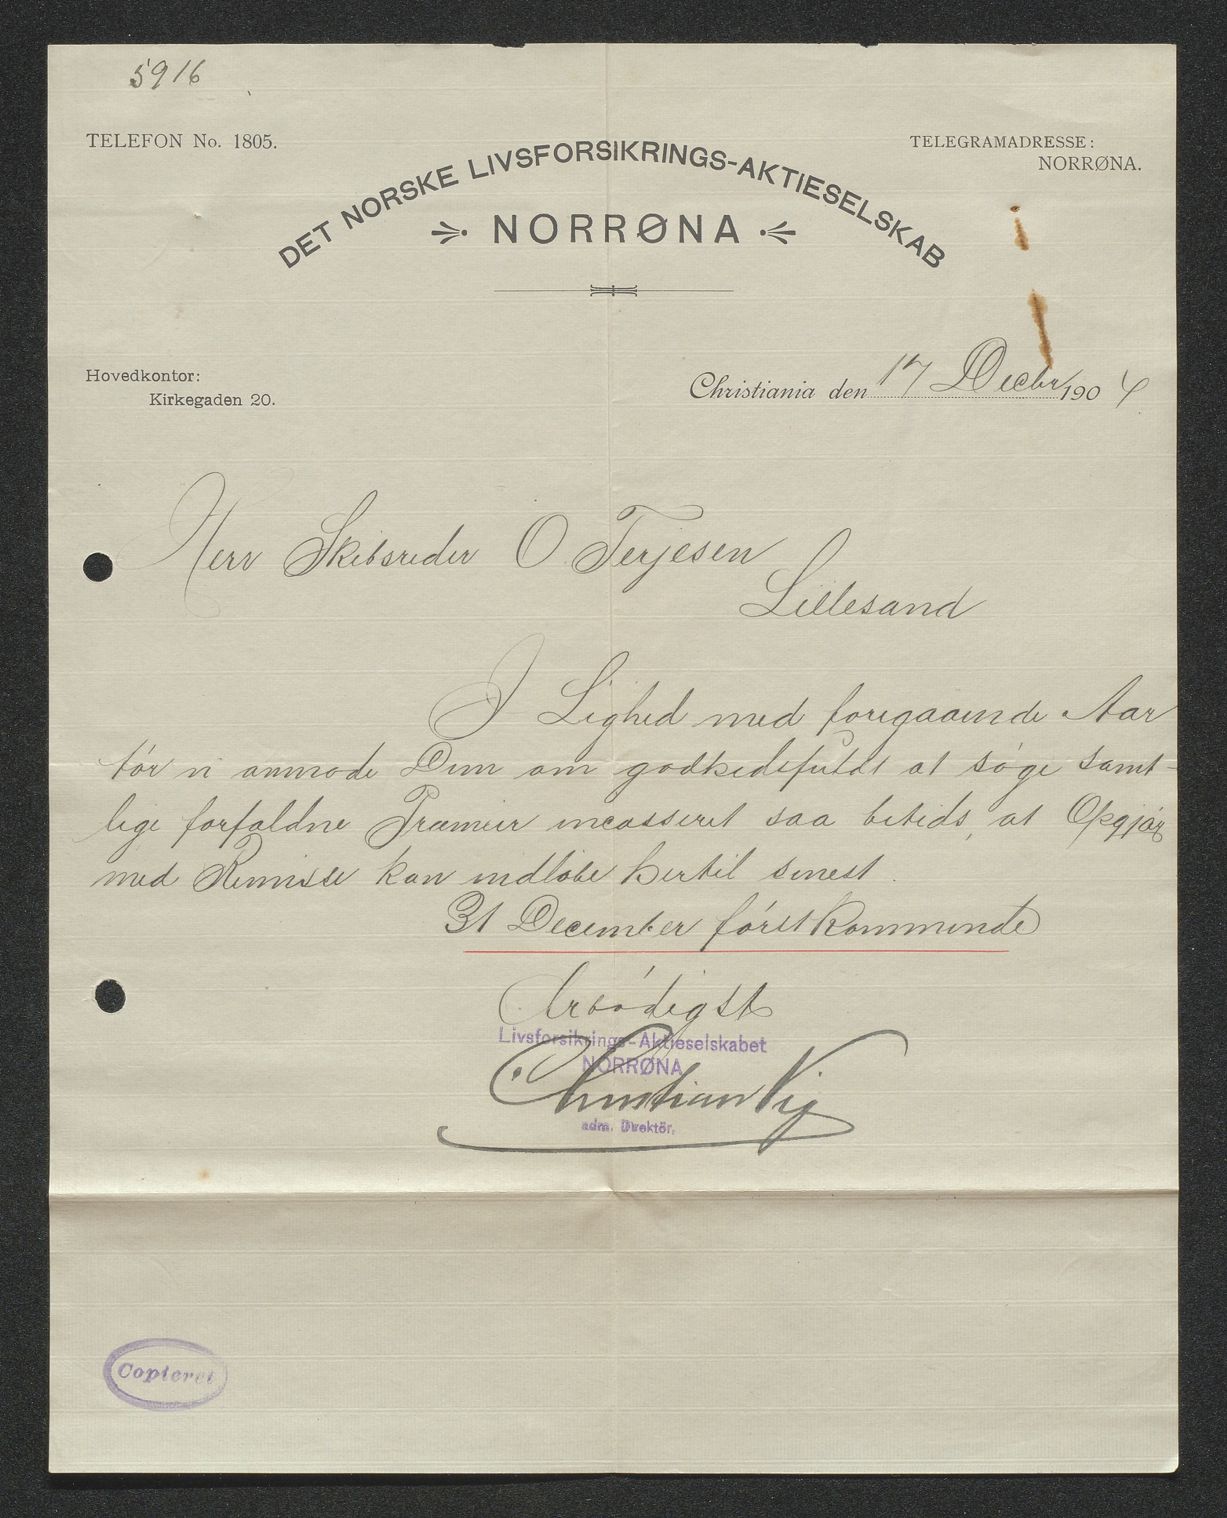 5916
TELEFON No. 1805.
TELEGRAMADRESSE:
NORRØNA.
DET NORSKE LIVSFORSIKRINGS-AKTIESELSKAB
NORRØNA
Hovedkontor:
Kirkegaden 20.
Christiania den 17 Decbr 1904
Herr Skibsreder O. Terjesen
Lillesand
I Lighed med foregaaende Aar
tør vi anmode Dem om godhedsfuldt at søge samt-
lige forfaldne Præmier incasseret saa betids, at Opgjør
med Remisse kan indløbe hertil senest
31 December førstkommende
Ærbødigst
Livsforsikrings-Aktieselskabet
NORRØNA
Christian Vig
adm. Direktör.
Copieret